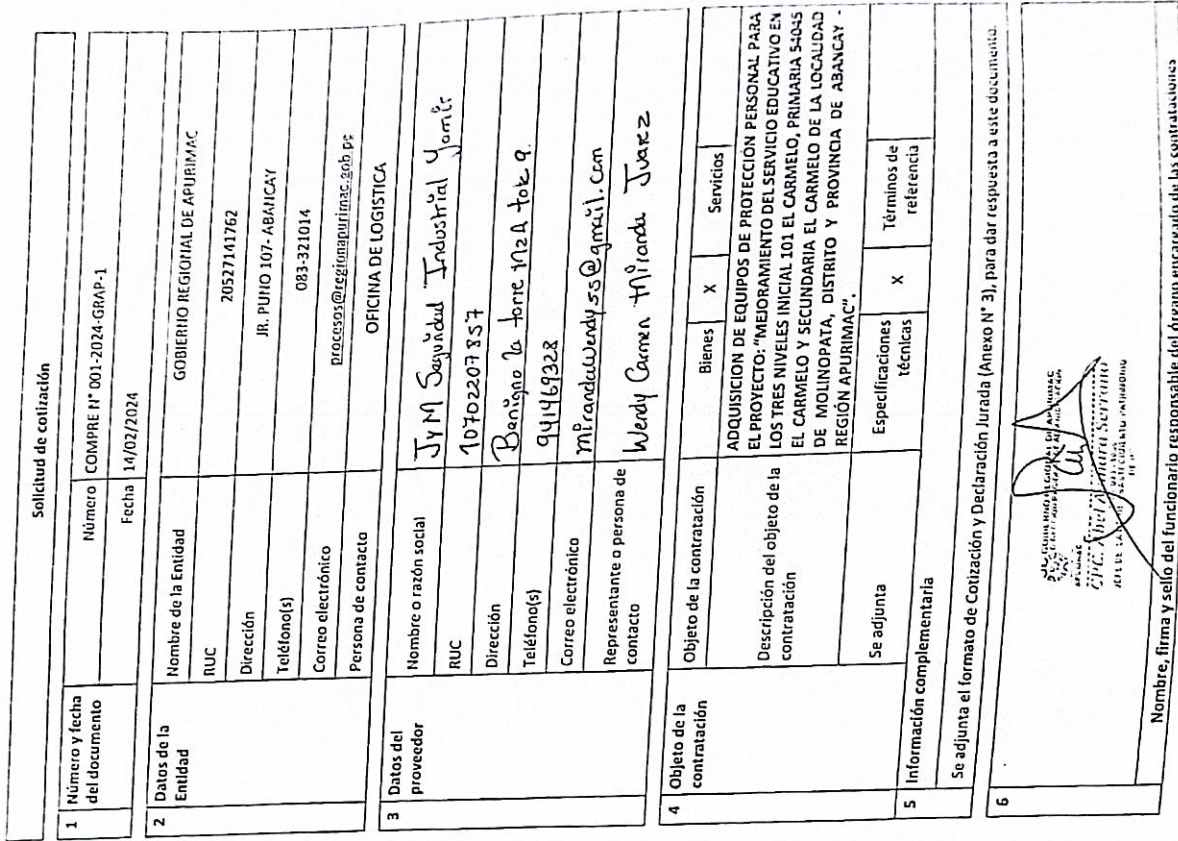 Solicitud de cotización
1 Número y fecha del documento
Número COMPRE N° 001-2024-GRAP-1
Fecha 14/02/2024
2 Datos de la Entidad
Nombre de la Entidad GOBIERNO REGIONAL DE APURIMAC
RUC 20527141762
Dirección JR. PUNO 107- ABANCAY
Teléfono(s) 083-321014
Correo electrónico procesos@regionapurimac.gob.pe
Persona de contacto OFICINA DE LOGISTICA
3 Datos del proveedor
Nombre o razón social JYM Seguridad Industrial Yamir
RUC 10702207857
Dirección Benigno la torre MzA lote 9.
Teléfono(s) 941469328
Correo electrónico mirandawendy55@gmail.com
Representante o persona de contacto Wendy Carmen Miranda Juarez
4 Objeto de la contratación
Objeto de la contratación Bienes X Servicios
Descripción del objeto de la contratación
ADQUISICION DE EQUIPOS DE PROTECCIÓN PERSONAL PARA
EL PROYECTO: "MEJORAMIENTO DEL SERVICIO EDUCATIVO EN
LOS TRES NIVELES INICIAL 101 EL CARMELO, PRIMARIA 54045
EL CARMELO Y SECUNDARIA EL CARMELO DE LA LOCALIDAD
DE MOLINOPATA, DISTRITO Y PROVINCIA DE ABANCAY -
REGIÓN APURIMAC".
Se adjunta Especificaciones técnicas X Términos de referencia
5 Información complementaria
Se adjunta el formato de Cotización y Declaración Jurada (Anexo N° 3), para dar respuesta a este documento.
6
GOBIERNO REGIONAL DE APURIMAC
CPC. Abel Serrano
Nombre, firma y sello del funcionario responsable del órgano encargado de las contrataciones